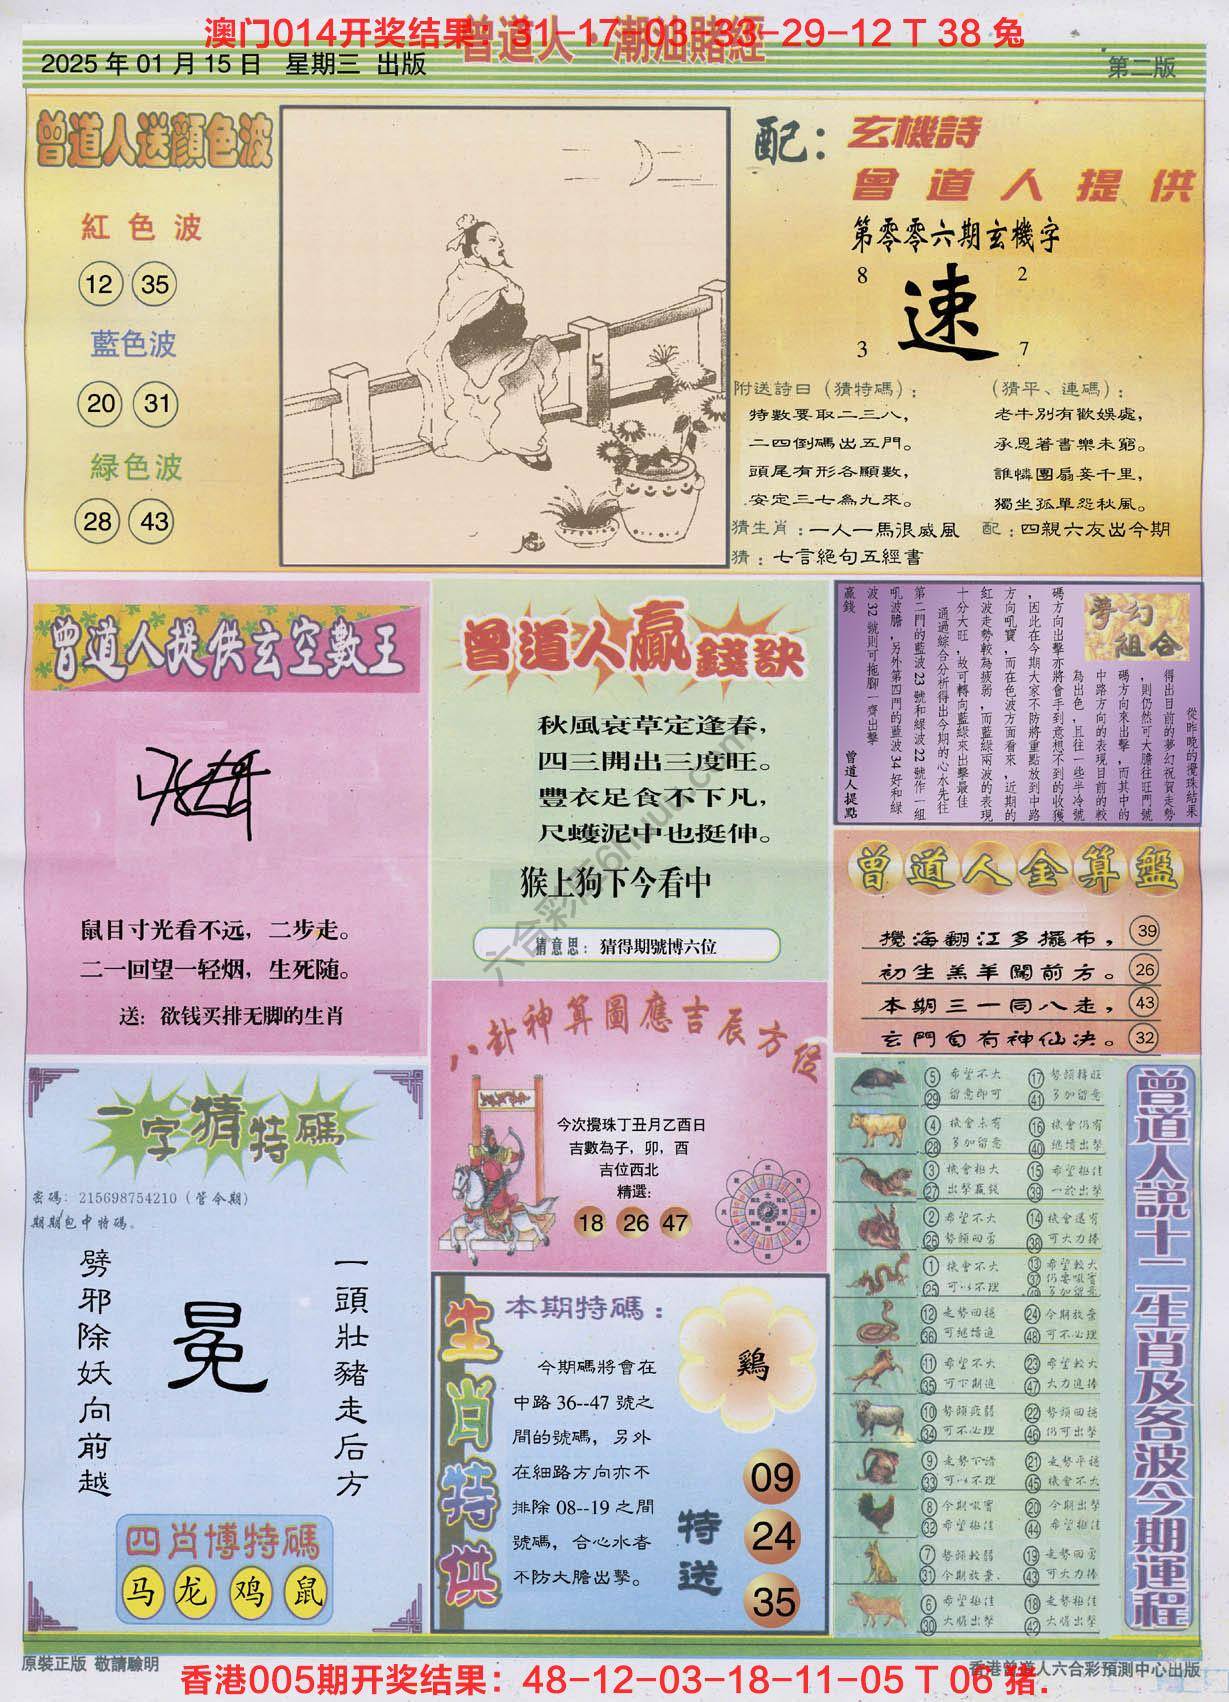 澳门014开奖结果：31-17-03-33-29-12 T 38 兔
曾道人·潮汕賭經
2025 年 01 月 15 日　星期三　出版
第二版
曾道人送顏色波
紅色波
12 35
藍色波
20 31
緑色波
28 43
5
配：玄機詩
曾道人提供
第零零六期玄機字
8 2
速
3 7
附送詩曰（猜特碼）：
特數要取二三八，
二四倒碼出五門。
頭尾有形各顯數，
安定三七為九來。
（猜平、連碼）：
老牛別有歡娛處，
承恩著書樂未窮。
誰憐團扇妾千里，
獨坐孤單怨秋風。
猜生肖：一人一馬很威風
配：四親六友出今期
猜：七言絕句五經書
曾道人提供玄空數王
鼠目寸光看不远，二步走。
二一回望一轻烟，生死随。
送：欲钱买排无脚的生肖
曾道人贏錢訣
秋風哀草定逢春，
四三開出三度旺。
豐衣足食不下凡，
尺蠖泥中也挺伸。
猴上狗下今看中
猜意思：猜得期號博六位
夢幻組合
從昨晚的攪珠結果
得出目前的夢幻祝賀走勢
，則仍然可大膽往旺門號
碼方向來出擊，而其中的
中路方向的表現目前的較
為出色，且往一些半冷號
碼方向出擊亦將會手到意想不到的收獲
，因此在今期大家不防將重點放到中路
方向吼寶，而在色波方面看來，近期的
紅波走勢較為疲弱，而藍綠兩波的表現
十分大旺，故可轉向藍綠來出擊最佳
通過綜合分析得出今期的心水先往
第二門的藍波 23 號和綠波 22 號作一組
吼波膽，另外第四門的藍波 34 好和綠
波 32 號則可拖腳一齊出擊
贏錢
曾道人提點
曾道人金算盤
攪海翻江多擺布， 39
初生羔羊闖前方。 26
本期三一同八走， 43
玄門自有神仙决。 32
八卦神算圖應吉辰方位
今次攪珠丁丑月乙酉日
吉數為子，卯，酉
吉位西北
精選:
18 26 47
一字猜特碼
密碼: 215698754210（管今期）
期期包中特碼。
一頭壯豬走后方
冕
劈邪除妖向前越
四肖博特碼
马 龙 鸡 鼠
生肖特供
本期特碼：
今期碼將會在
中路 36--47 號之
間的號碼，另外
在細路方向亦不
排除 08--19 之間
號碼，合心水者
不防大膽出擊。
鷄
特送
09
24
35
曾道人説十二生肖及各波今期運程
⑤ 希望不大 ⑰ 勢頭轉旺
㉙ 留意即可 ㊶ 多加留意
④ 機會未有 ⑯ 機會仍有
㉘ 多加留意 ㊵ 继續出擊
③ 機會極大 ⑮ 希望極佳
㉗ 出擊贏錢 ㊴ 一於出擊
② 希望不大 ⑭ 機會還有
㉖ 勢頭回勇 ㊳ 可大力捧
① 機會不大 ⑬ 希望較大
㉕ 可以不理
⑫ 走勢回穩 ㉔ 今期放棄
㊱ 可继續追 ㊽ 可不必理
⑪ 希望不大 ㉓ 希望較大
㉟ 可下期進 ㊼ 大力追捧
⑩ 勢頭疲弱 ㉒ 勢頭回穩
㉞ 可不必理 ㊻ 仍可出擊
⑨ 走勢下滑 ㉑ 走勢平穩
㉝ 可以不理 ㊺ 機會不大
⑧ 今期吼寶 ⑳ 今期出擊
㉜ 希望極佳 ㊹ 希望極佳
⑦ 勢頭較弱 ⑲ 走勢回勇
㉛ 今期放棄. ㊸ 可大力捧
⑥ 希望極佳 ⑱ 走勢極佳
㉚ 大膽出擊 ㊷ 大膽出擊
原裝正版 敬請驗明
香港曾道人六合彩預測中心出版
香港005期开奖结果：48-12-03-18-11-05 T 06 猪.